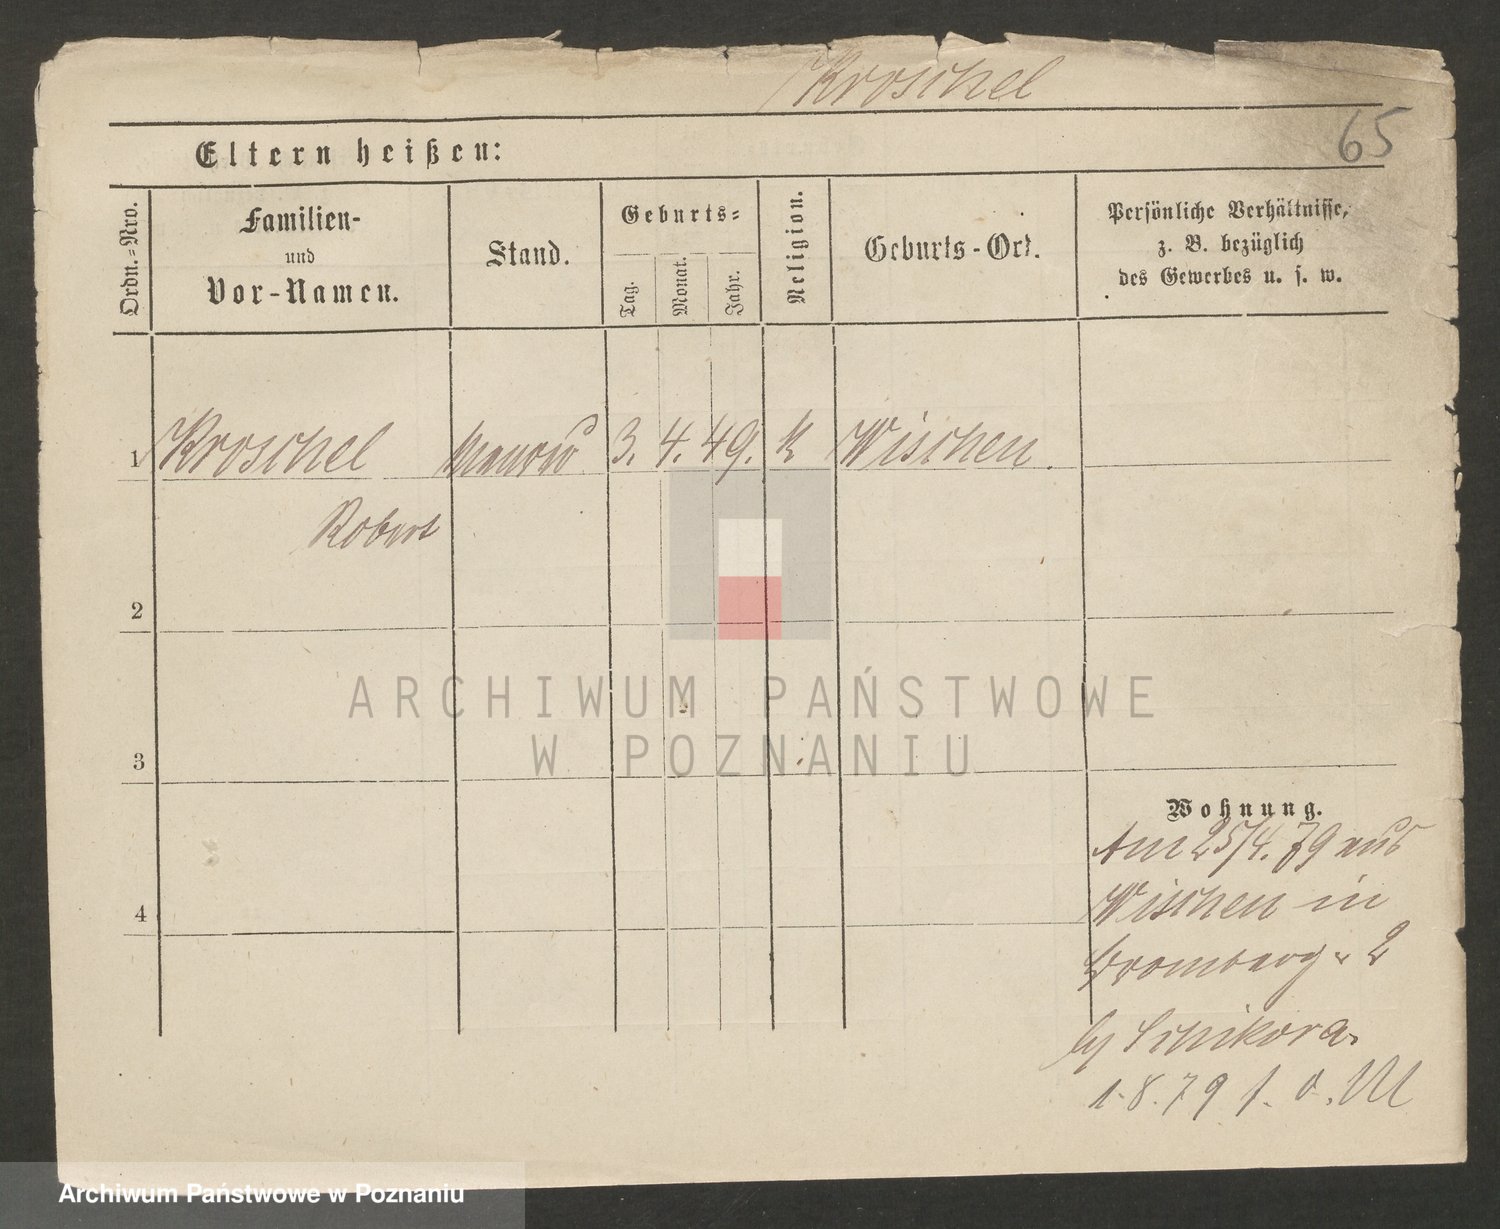 Kroschel
65
Eltern heißen:
Ordn.-Nro.
Familien-
und
Vor-Namen.
Stand.
Geburts-
Tag.
Monat.
Jahr.
Religion.
Geburts-Ort.
Persönliche Verhältnisse,
z. B. bezüglich
des Gewerbes u. s. w.
1 Kroschel 3. 4. 49. k Wischen.
Robert
2
ARCHIWUM PAŃSTWOWE
W POZNANIU
3
Wohnung.
Am 25/4. 79 aus
Wischen in
4
Bromberg 2
1.8.79 f. o. M
Archiwum Państwowe w Poznaniu